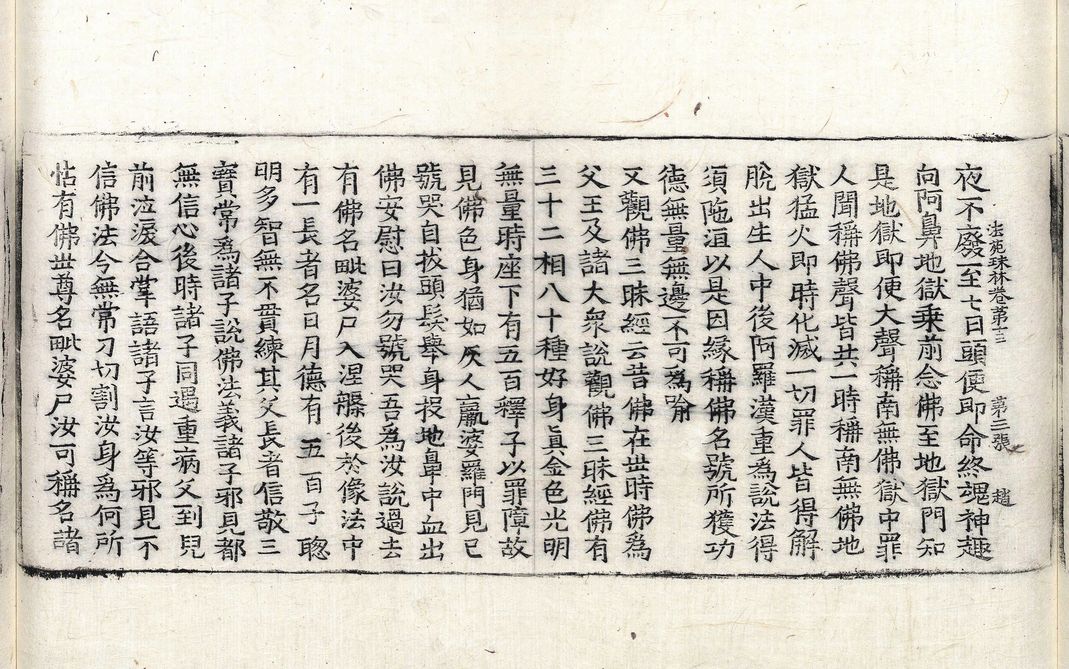 法苑珠林卷第十三 第三張 趙
夜不廢一至七日頭便即命終魂神趣
向阿鼻地獄乗前念佛至地獄門知
是地獄即便大聲稱南無佛獄中罪
人聞稱佛聲皆共一時稱南無佛地
獄猛火即時化滅一切罪人皆得解
脫出生人中後阿羅漢重為說法得
須陁洹以是因緣稱佛名號所獲功
德無量無邊不可為喻
又觀佛三昧經云昔佛在世時佛為
父王及諸大衆說觀佛三昧經佛有
三十二相八十種好身真金色光明
無量時座下有五百釋子以罪障故
見佛色身猶如灰人羸婆羅門見已
號哭自拔頭髮舉身投地鼻中血出
佛安慰曰汝勿號哭吾為汝說過去
有佛名毗婆尸入涅槃後於像法中
有一長者名日月德有五百子聦
明多智無不貫練其父長者信敬三
寳常為諸子說佛法義諸子邪見都
無信心後時諸子同遇重病父到兒
前泣淚合掌語諸子言汝等邪見不
信佛法今無常刀切割汝身為何所
怙有佛世尊名毗婆尸汝可稱名諸